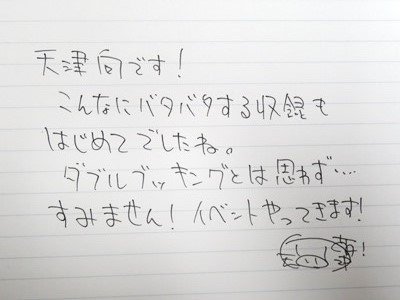 天津向です!
こんなにバタバタする収録も
はじめてでしたね。
ダブルブッキングとは思わず…
すみません!イベントやってきます!